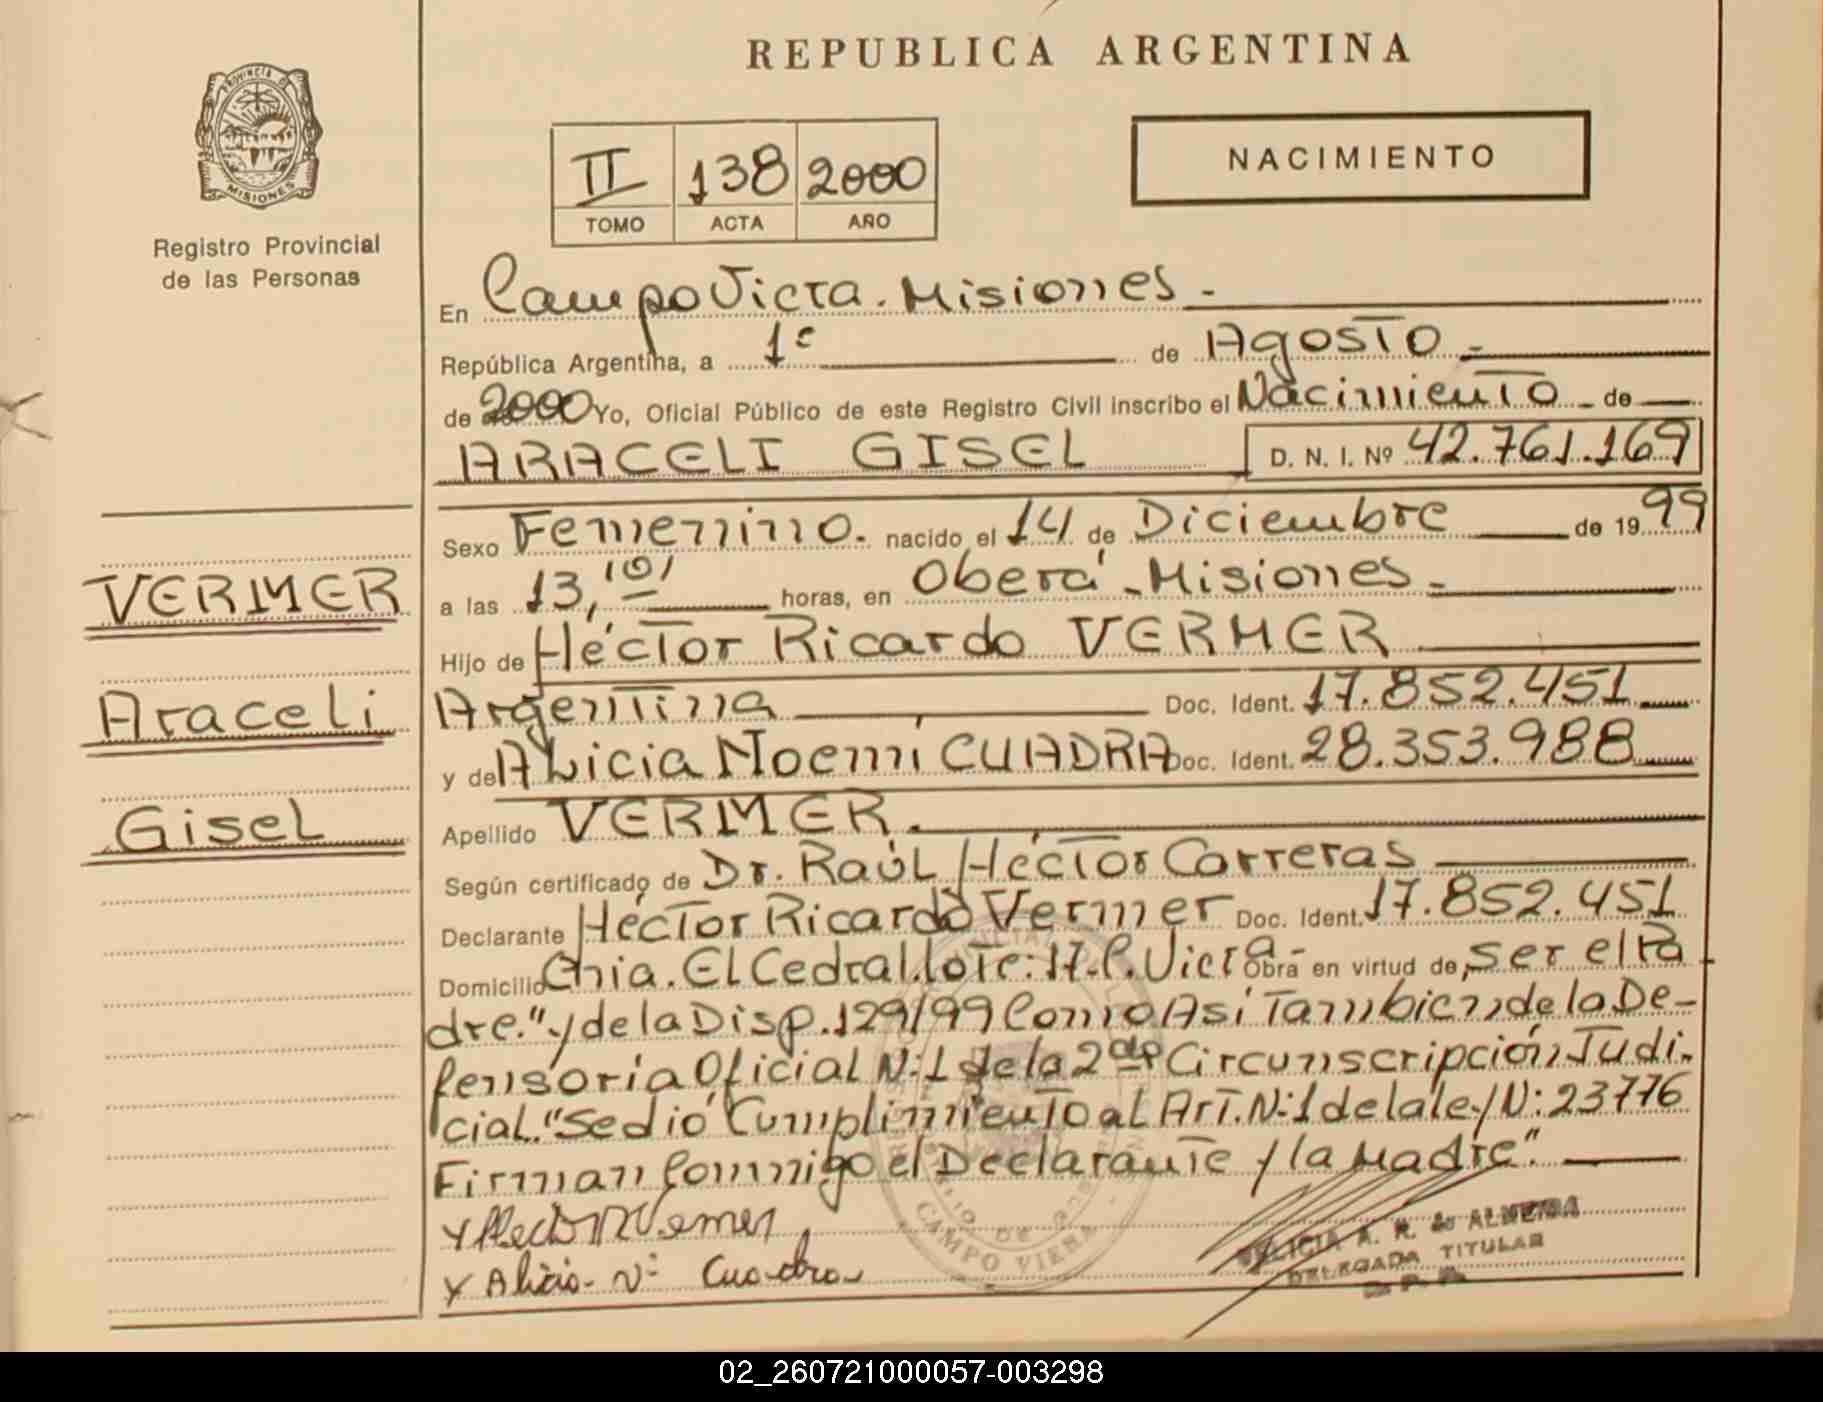 REPUBLICA ARGENTINA
PROVINCIA DE
MISIONES
Registro Provincial
de las Personas
II 138 2000
TOMO ACTA AÑO
NACIMIENTO
En Campo Viera. Misiones -
República Argentina, a 1º de Agosto -
de 2000 Yo, Oficial Público de este Registro Civil inscribo el Nacimiento - de
ARACELI GISEL D. N. I. Nº 42.761.169
Sexo Femenino. nacido el 14 de Diciembre de 1999
a las 13,10 horas, en Oberá - Misiones -
Hijo de Héctor Ricardo VERMER
Argentina Doc. Ident. 17.852.451
y de Alicia Noemí CUADRA Doc. Ident. 28.353.988
Apellido VERMER.
Según certificado de Dr. Raúl Héctor Carreras
Declarante Héctor Ricardo Vermer Doc. Ident. 17.852.451
Domicilio Cnia. El Cedral. lote: 17. C. Viera - Obra en virtud de "ser el Pa
dre." y de la Disp. 129/99 Como Así También de la De-
fensoría Oficial N:1 de la 2da Circunscripción Judi-
cial. "Se dió Cumplimiento al Art. N:1 de la ley N: 23776
Firman Conmigo el Declarante y la Madre".
VERMER
Araceli
Gisel
X Hector R Vermer
X Alicia - N - Cuadra
CAMPO VIERA
FELICIA A. R. de ALMEIDA
DELEGADA TITULAR
02_260721000057-003298